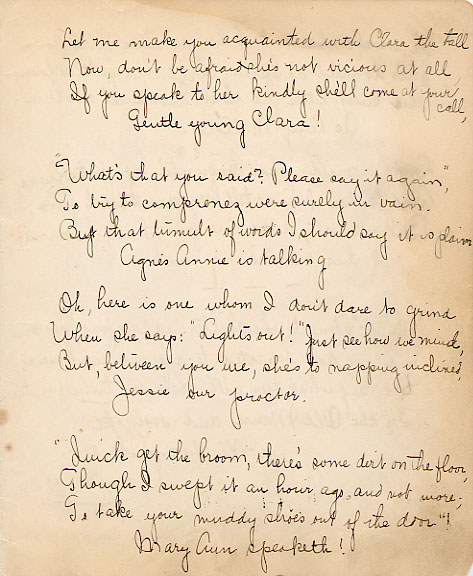 Let me make you acquainted with Clara the tall
Now, don't be afraid she's not vicious at all,
If you speak to her kindly she'll come at your call,
Gentle young Clara!
"What's that you said? Please say it again,"
To try to comprenez were surely in vain.
But that tumult of words I should say it is plain
Agnes Annie is talking
Oh, here is one whom I don't dare to grind
When she says: "Lights out!" Just see how we mind,
But, between you us, she's to napping inclined,
Jessie our proctor.
"Quick get the broom, there's some dirt on the floor,
Though I swept it an hour ago, and not more;
Go take your muddy shoes out of the door"!
Mary Ann speaketh!